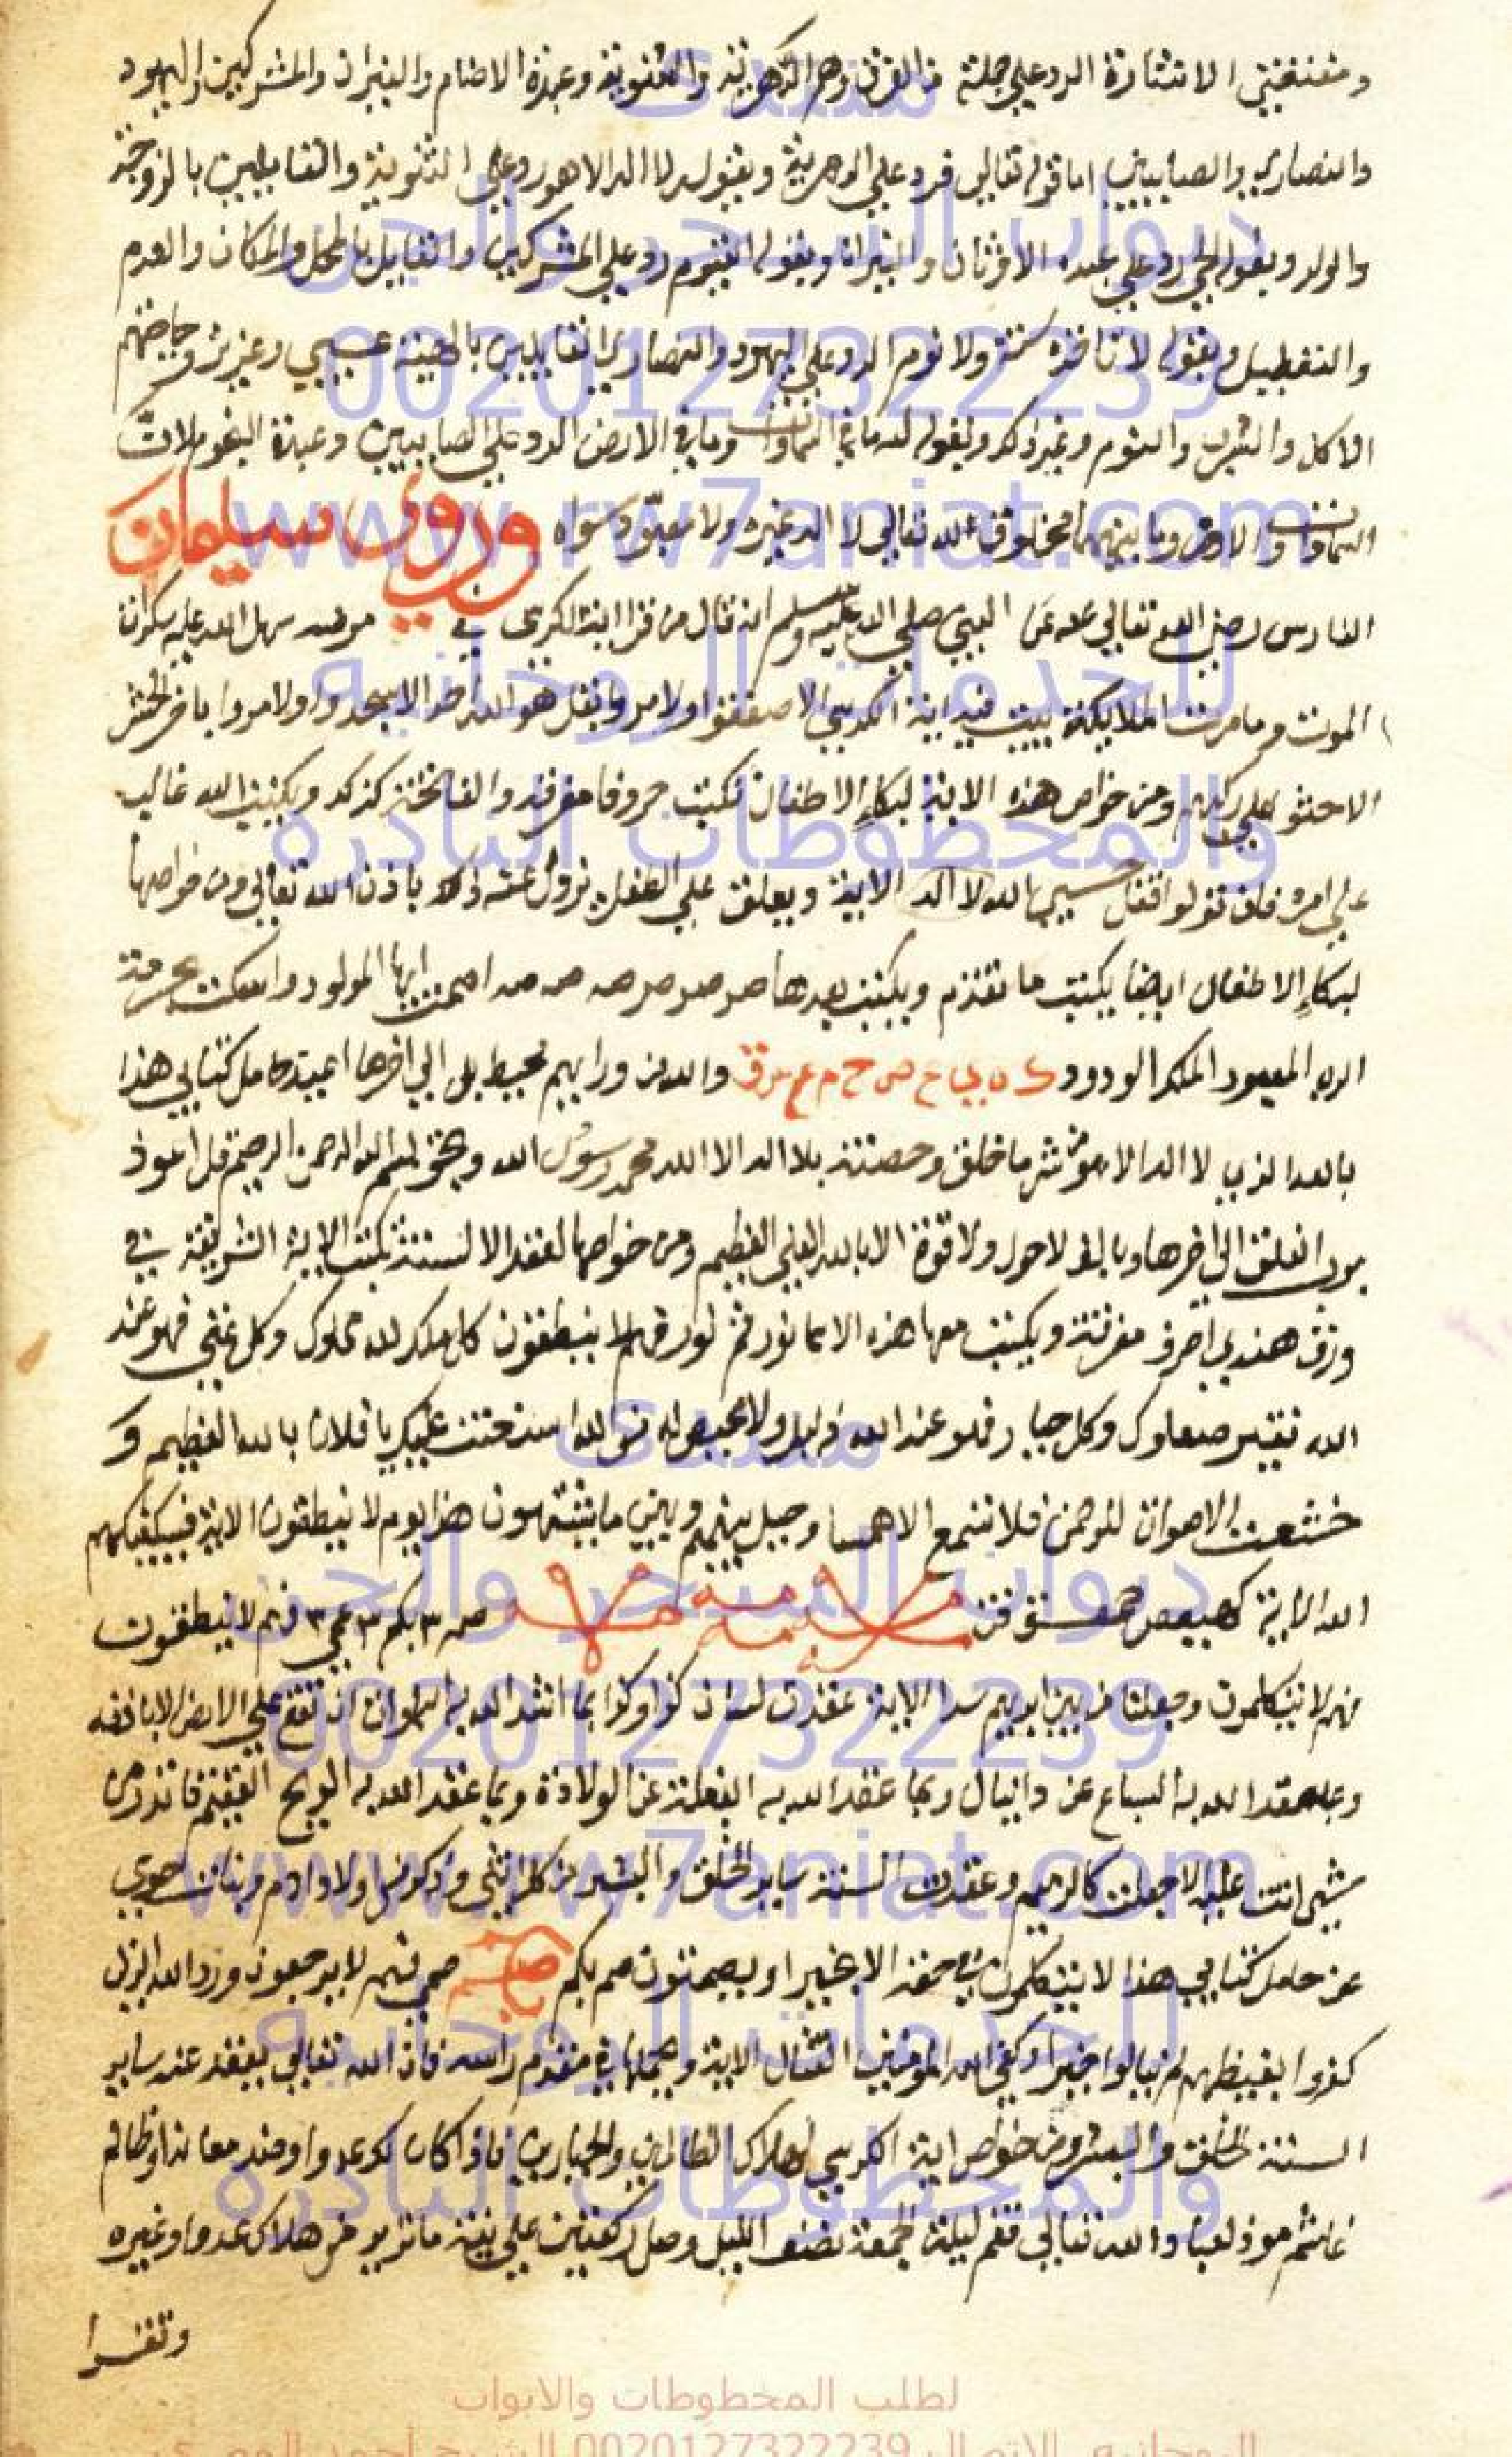 ومقتضى الاشارة الرد علي جملة من الفرق وهم الدهرية والثنوية وعبدة الاصنام والنيران والمشركين واليهود
والنصاري والصابيين اما قوله تعالي فرد علي الدهرية وبقوله لا اله الا هو رد علي الثنوية والقايلين بالزوجة
والولد وبقوله الحي رد علي عبدة الاوثان والنيران وبقوله القيوم رد علي المشركين والقايل بالمحل والمكان والعدم
والتعطيل وبقوله لا تاخذه سنة ولا نوم الرد علي اليهود والنصاري القايلين بالهية عيسي وعزير
الاكل والشرب والنوم وغير ذلك وبقوله له ما في السماوات وما في الارض الرد علي الصابيين وعبدة النجوم لان
السماوات والارض وما بينهما مخلوق لله تعالي لا اله غيره ولا معبود سواه وروي سليمان
الفارس رضي الله تعالي عنه عن النبي صلي الله عليه وسلم انه قال من قرا اية الكرسي في مرضه سهل الله عليه سكرات
الموت وما مرت الملايكة ببيت فيه اية الكرسي الا صعقوا ولا مروا بقل هو الله احد الا سجدوا ولا مروا باخر الحشر
الا جثو علي ركبهم ومن خواص هذه الاية لبكاء الاطفال تكتب حروفا مفرقة والفاتحة كذلك ويكتب الله غالب
علي امره فان تولوا فقل حسبي الله لا اله الاية ويعلق علي الطفل يزول عنه ذلك باذن الله تعالي ومن خواصها
لبكاء الاطفال ايضا يكتب ما تقدم ويكتب بعدها صه صه صه صه صه صه اصمت ايها المولود واسكت بحرمة
الرب المعبود الملك الودود ك ه ي ع ص ح م ع س ق والله من ورايهم محيط بل الي اخرها اعيذ حامل كتابي هذا
بالله الذي لا اله الا هو من شر ما خلق وحصنته بلا اله الا الله محمد رسول الله وبحق بسم الله الرحمن الرحيم قل اعوذ
برب الفلق الي اخرها وبالف لا حول ولا قوة الا بالله العلي العظيم ومن خواصها لعقد الالسنة تكتب الاية الشريفة في
ورق هندي احرف مفرقة ويكتب معها هذه الاسما فهم لا ينطقون كل ملك لله مملوك وكل غني فهو عند
الله فقير صعلوك وكل جبار فهو عند الله ذليل ولا محيص له من الله استعنت عليك يا فلان بالله العظيم و
خشعت الاصوات للرحمن فلا تسمع الا همسا وحيل بينهم وبين ما يشتهون هذا يوم لا ينطقون الاية فسيكفيكهم
الله الاية كهيعص حمعسق ق صم ٣ بكم ٣ عمي ٣ فهم لا ينطقون
فهم لا يتكلمون وجعلنا من بين ايديهم سدا الاية عقدت لسان كذا وكذا بما الله به السموات ان تقع علي الارض الا باذنه
وبما عقد الله به السباع عن دانيال وبما عقد الله به البغلة عن الولادة وبما عقد الله به الريح العقيم ما تذر من
شي اتت عليه الا جعلته كالرميم وعقدت السنة ساير الخلق والبشر من كل انثي وذكر من اولاد ادم وبنات حوي
عن حامل كتابي هذا لا يتكلمون في حقه الا بخير او ليصمتون صم بكم عمي فهم لا يرجعون ورد الله الذين
كفروا بغيظهم لم ينالوا خيرا وكفي الله المومنين القتال الاية ويجعلها في مقدم راسه فان الله تعالي يعقد عنه ساير
السنة الخلق والبشر ومن خواص اية الكرسي لهلاك الظالمين والجبارين فاذا كان لك عدوا وضد معاندا وظالم
غاشم موذ لعباد الله تعالي فقم ليلة الجمعة نصف الليل وصل ركعتين علي نية ما تريد من هلاك عدو او غيره
وتقرا
منتدى
ديوان السحر والجن
00201277322239
www.rw7aniat.com
للخدمات الروحانية
والمخطوطات النادرة
منتدى
ديوان السحر والجن
00201277322239
www.rw7aniat.com
للخدمات الروحانية
والمخطوطات النادرة
لطلب المخطوطات والابواب
الروحانيه الاتصال 00201277322239 الشيخ احمد